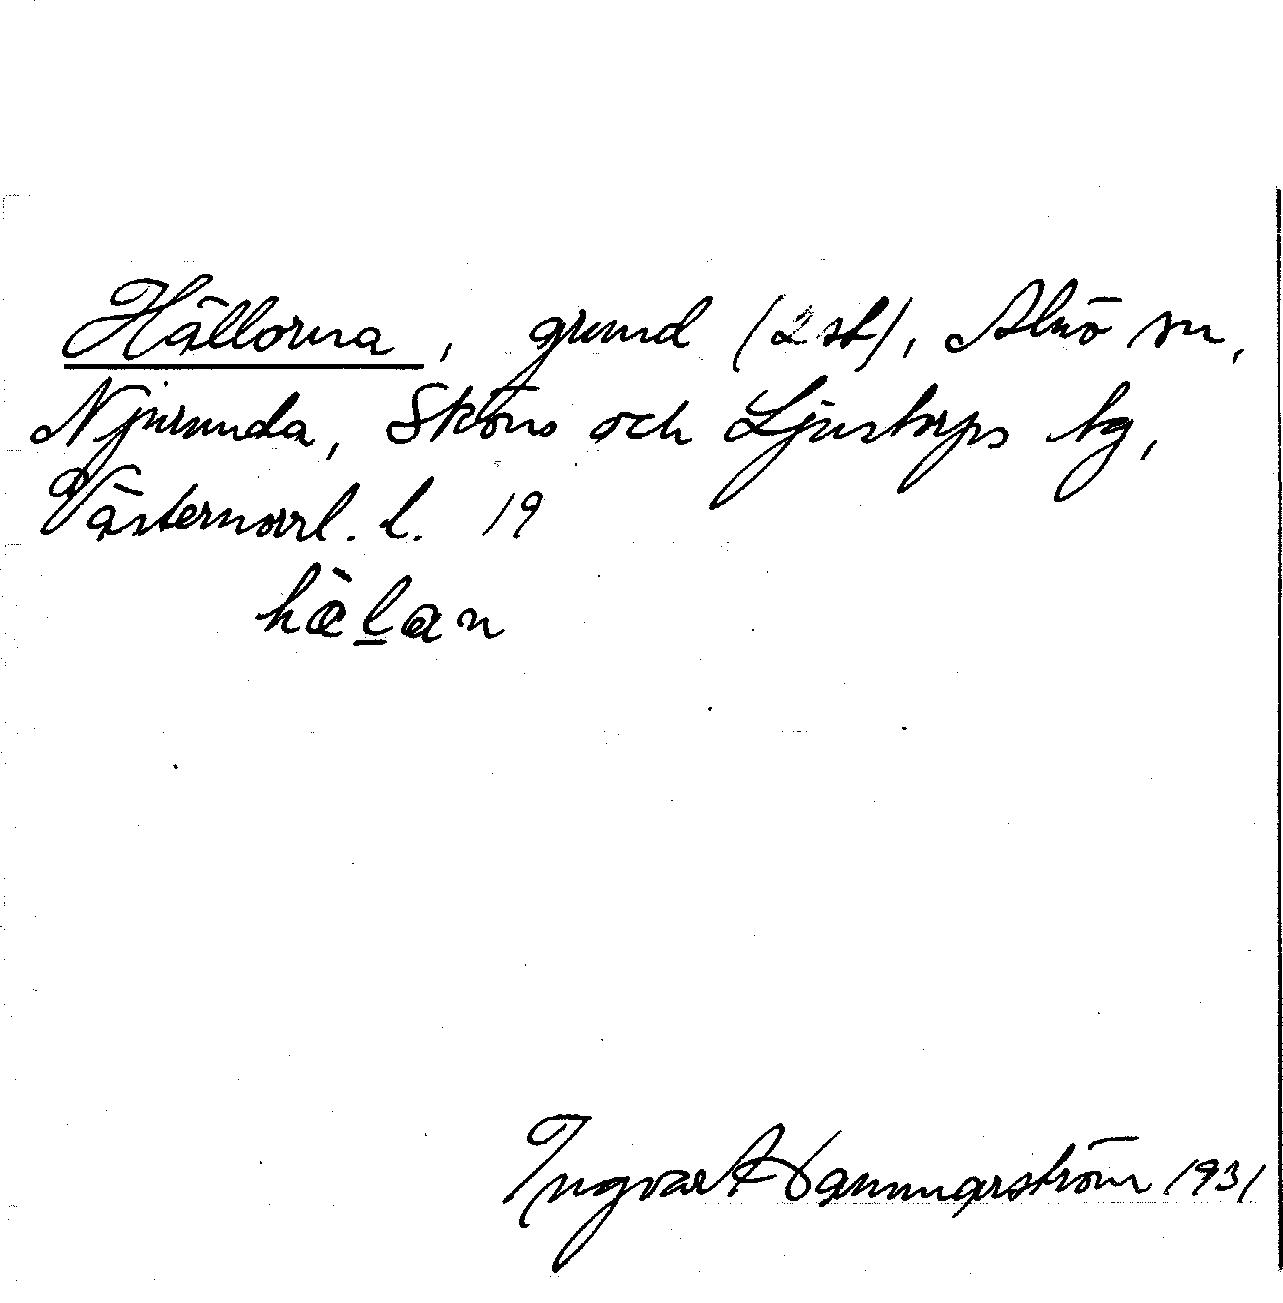 Hällorna, grund (2 st), Alnö sn,
Njurunda, Sköns och Ljustorps tg,
Västernorrl. l. 19
hæ̀l̠an
Ingvar Hammarström 1931